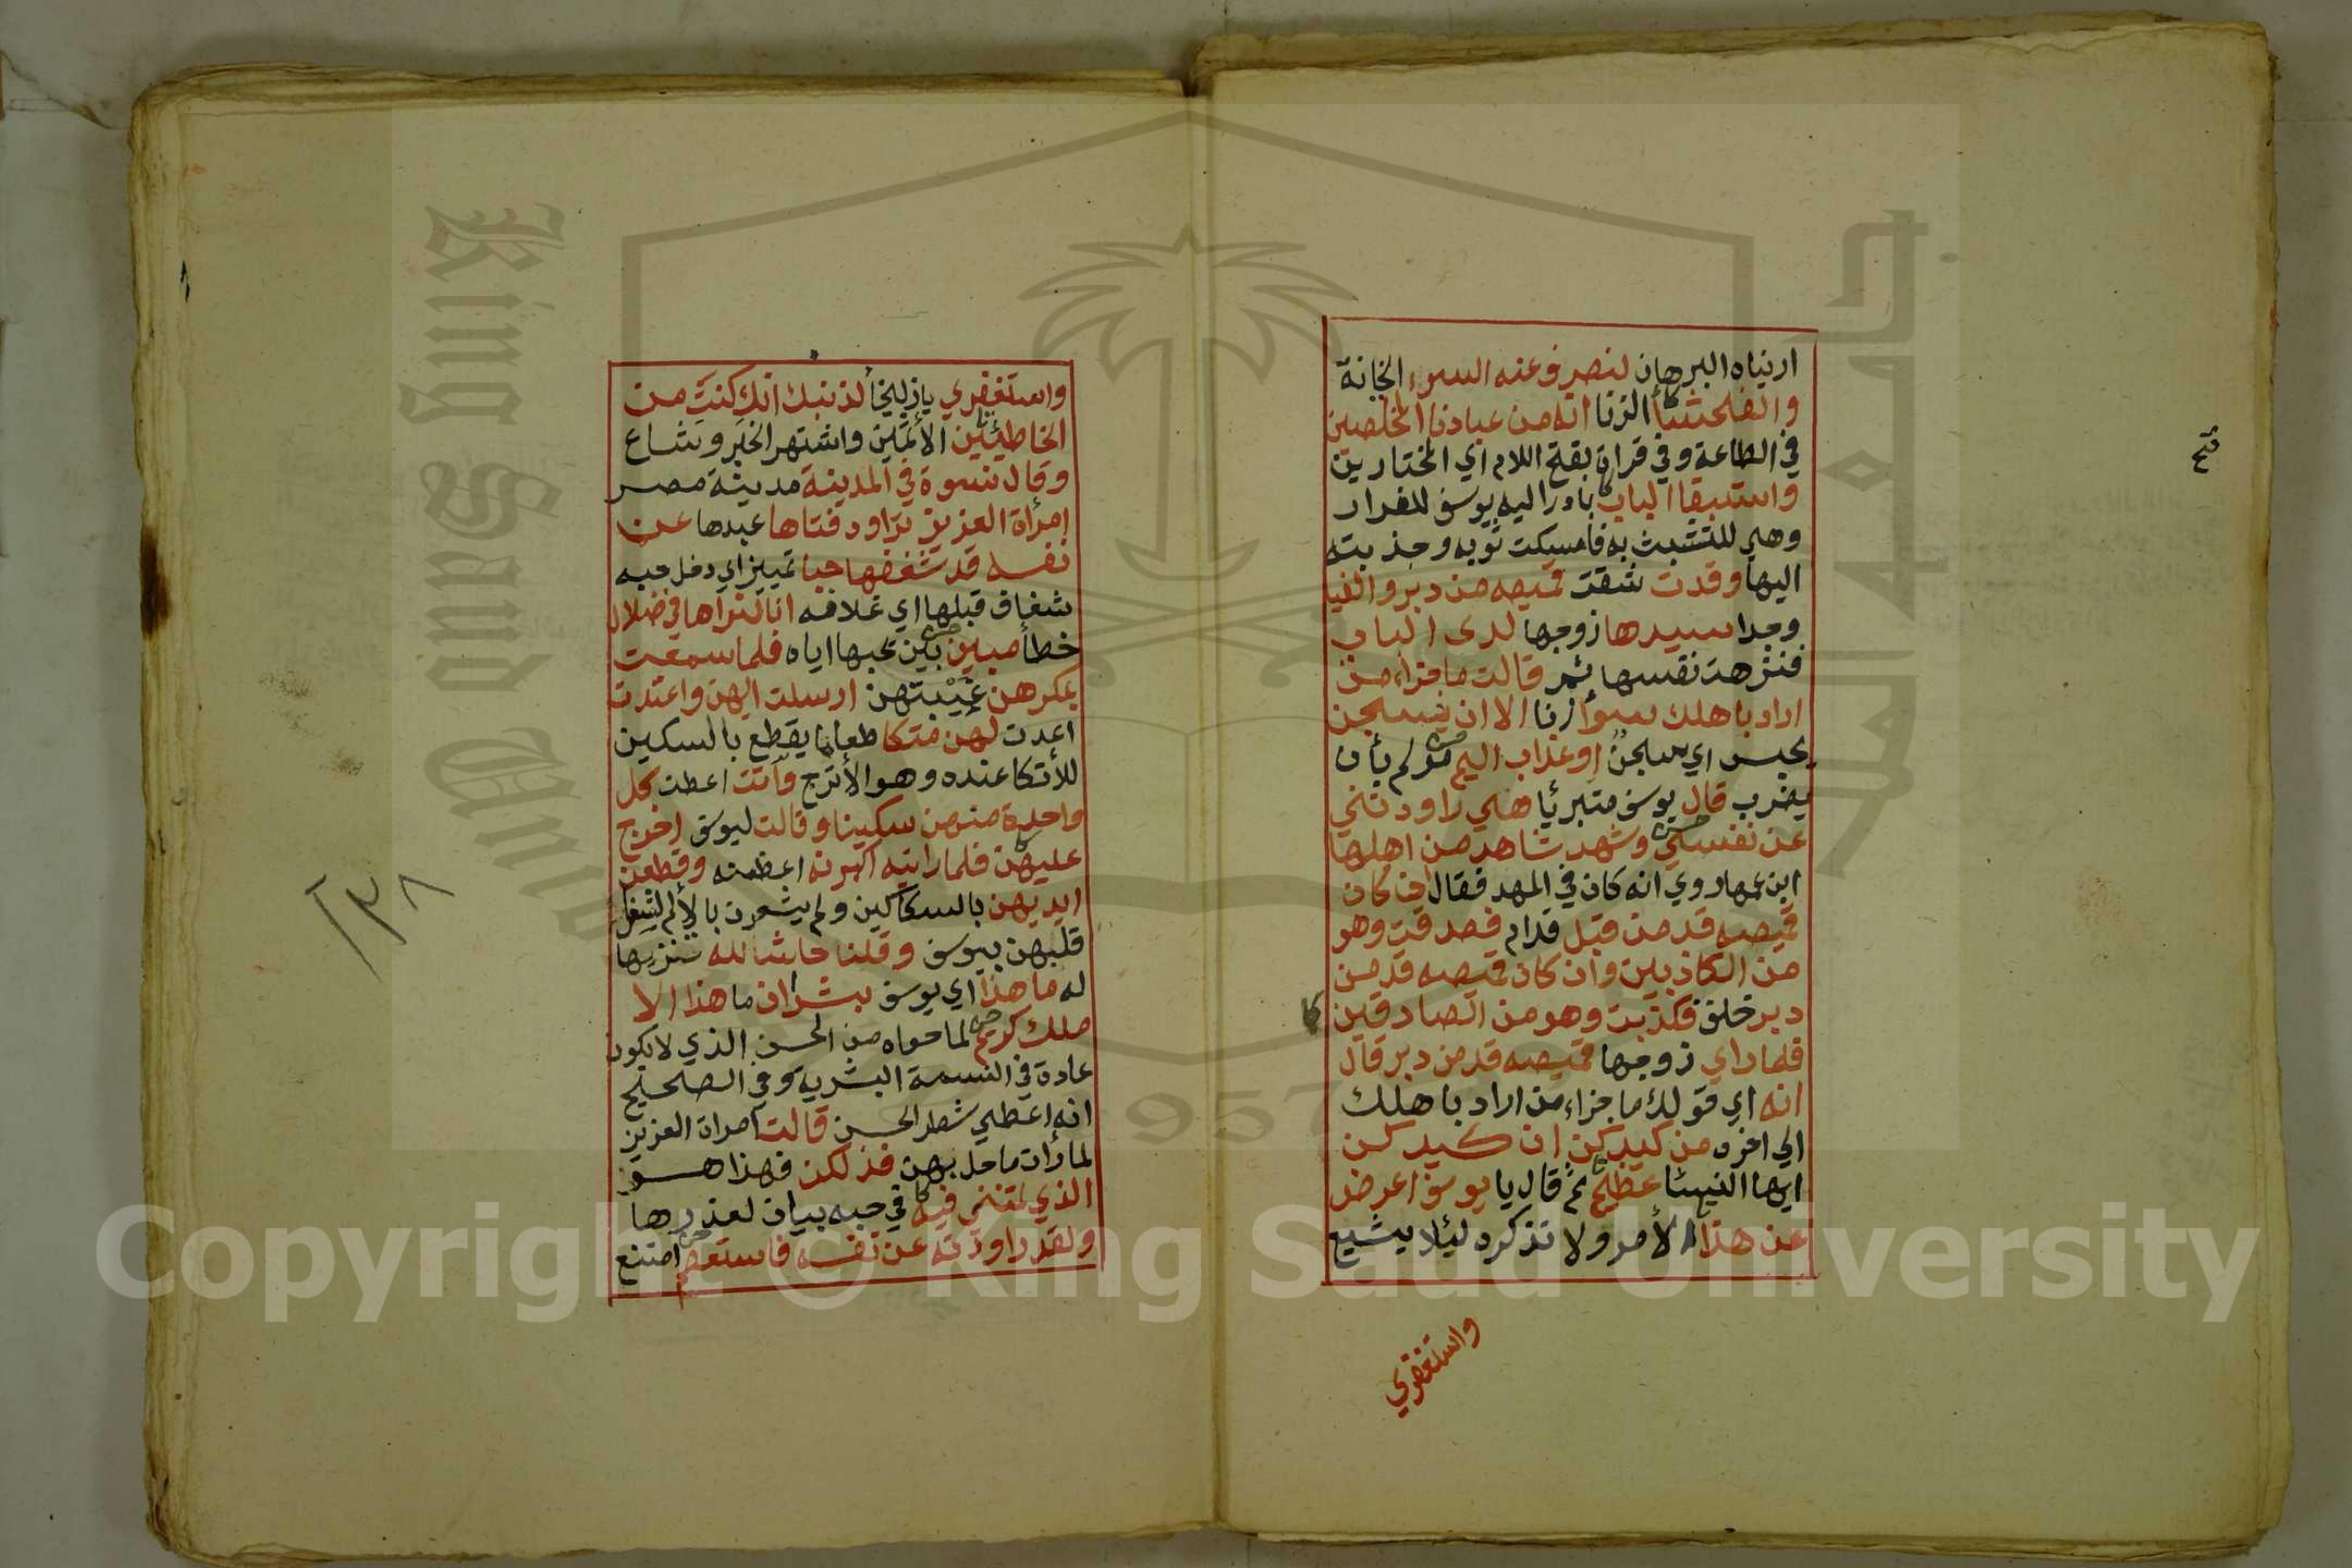 اريناه البرهان لنصرف عنه السوء الخيانة
والفحشا الزنا انه من عبادنا المخلصين
في الطاعة وفي قراة بفتح اللام اي المختارين
واستبقا الباب بادرا اليه يوسف للفرار
وهي للتشبث به فامسكت ثوبه وجذبته
اليها وقدت شقت قميصه من دبر والفيا
وجدا سيدها زوجها لدى الباب
فنزهت نفسها ثم قالت ما جزاء من
اراد باهلك سوأ زنا الا ان يسجن
يحبس اي سجن او عذاب اليم مؤلم بأن
يضرب قال يوسف متبرئا هي راودتني
عن نفسي وشهد شاهد من اهلها
ابن عمها روي انه كان في المهد فقال ان كان
قميصه قد من قبل قدام فصدقت وهو
من الكاذبين وان كان قميصه قد من
دبر خلف فكذبت وهو من الصادقين
فلما راي زوجها قميصه قد من دبر قال
انه اي قولك ما جزاء من اراد باهلك
الي اخره من كيدكن ان كيدكن
ايها النسا عظيم ثم قال يا يوسف اعرض
عن هذا الأمر ولا تذكره ليئلا يشيع
واستغفري
فتح
واستغفري يا زليخا لذنبك انك كنت من
الخاطئين الأثمين واشتهر الخبر وشاع
وقال نسوة في المدينة مدينة مصر
امرأة العزيز تراود فتاها عبدها عن
نفسه قد شغفها حبا تمييز اي دخل حبه
شغاف قبلها اي غلافه انا لنراها في ضلال
خطأ مبين بين بحبها اياه فلما سمعت
بمكرهن غيبتهن ارسلت اليهن واعتدت
اعدت لهن متكا طعاما يقطع بالسكين
للأتكا عنده وهو الأترج وآتت اعطت كل
واحدة منهن سكينا وقالت ليوسف اخرج
عليهن فلما راينه اكبرنه اعظمنه وقطعن
ايديهن بالسكاكين ولم يشعرن بالألم لشغل
قلبهن بيوسف وقلنا حاشا لله تنزيها
له ما هذا اي يوسف بشرا ان ما هذا الا
ملك كريم لما حواه من الحسن الذي لا يكون
عادة في النسمة البشرية وفي الصحيح
انه اعطي شطر الحسن قالت امراة العزيز
لما رأت ما حل بهن فذلكن فهذا هو
الذي لمتنني فيه في حبه بيان لعذرها
ولقد راودته عن نفسه فاستعصم امتنع